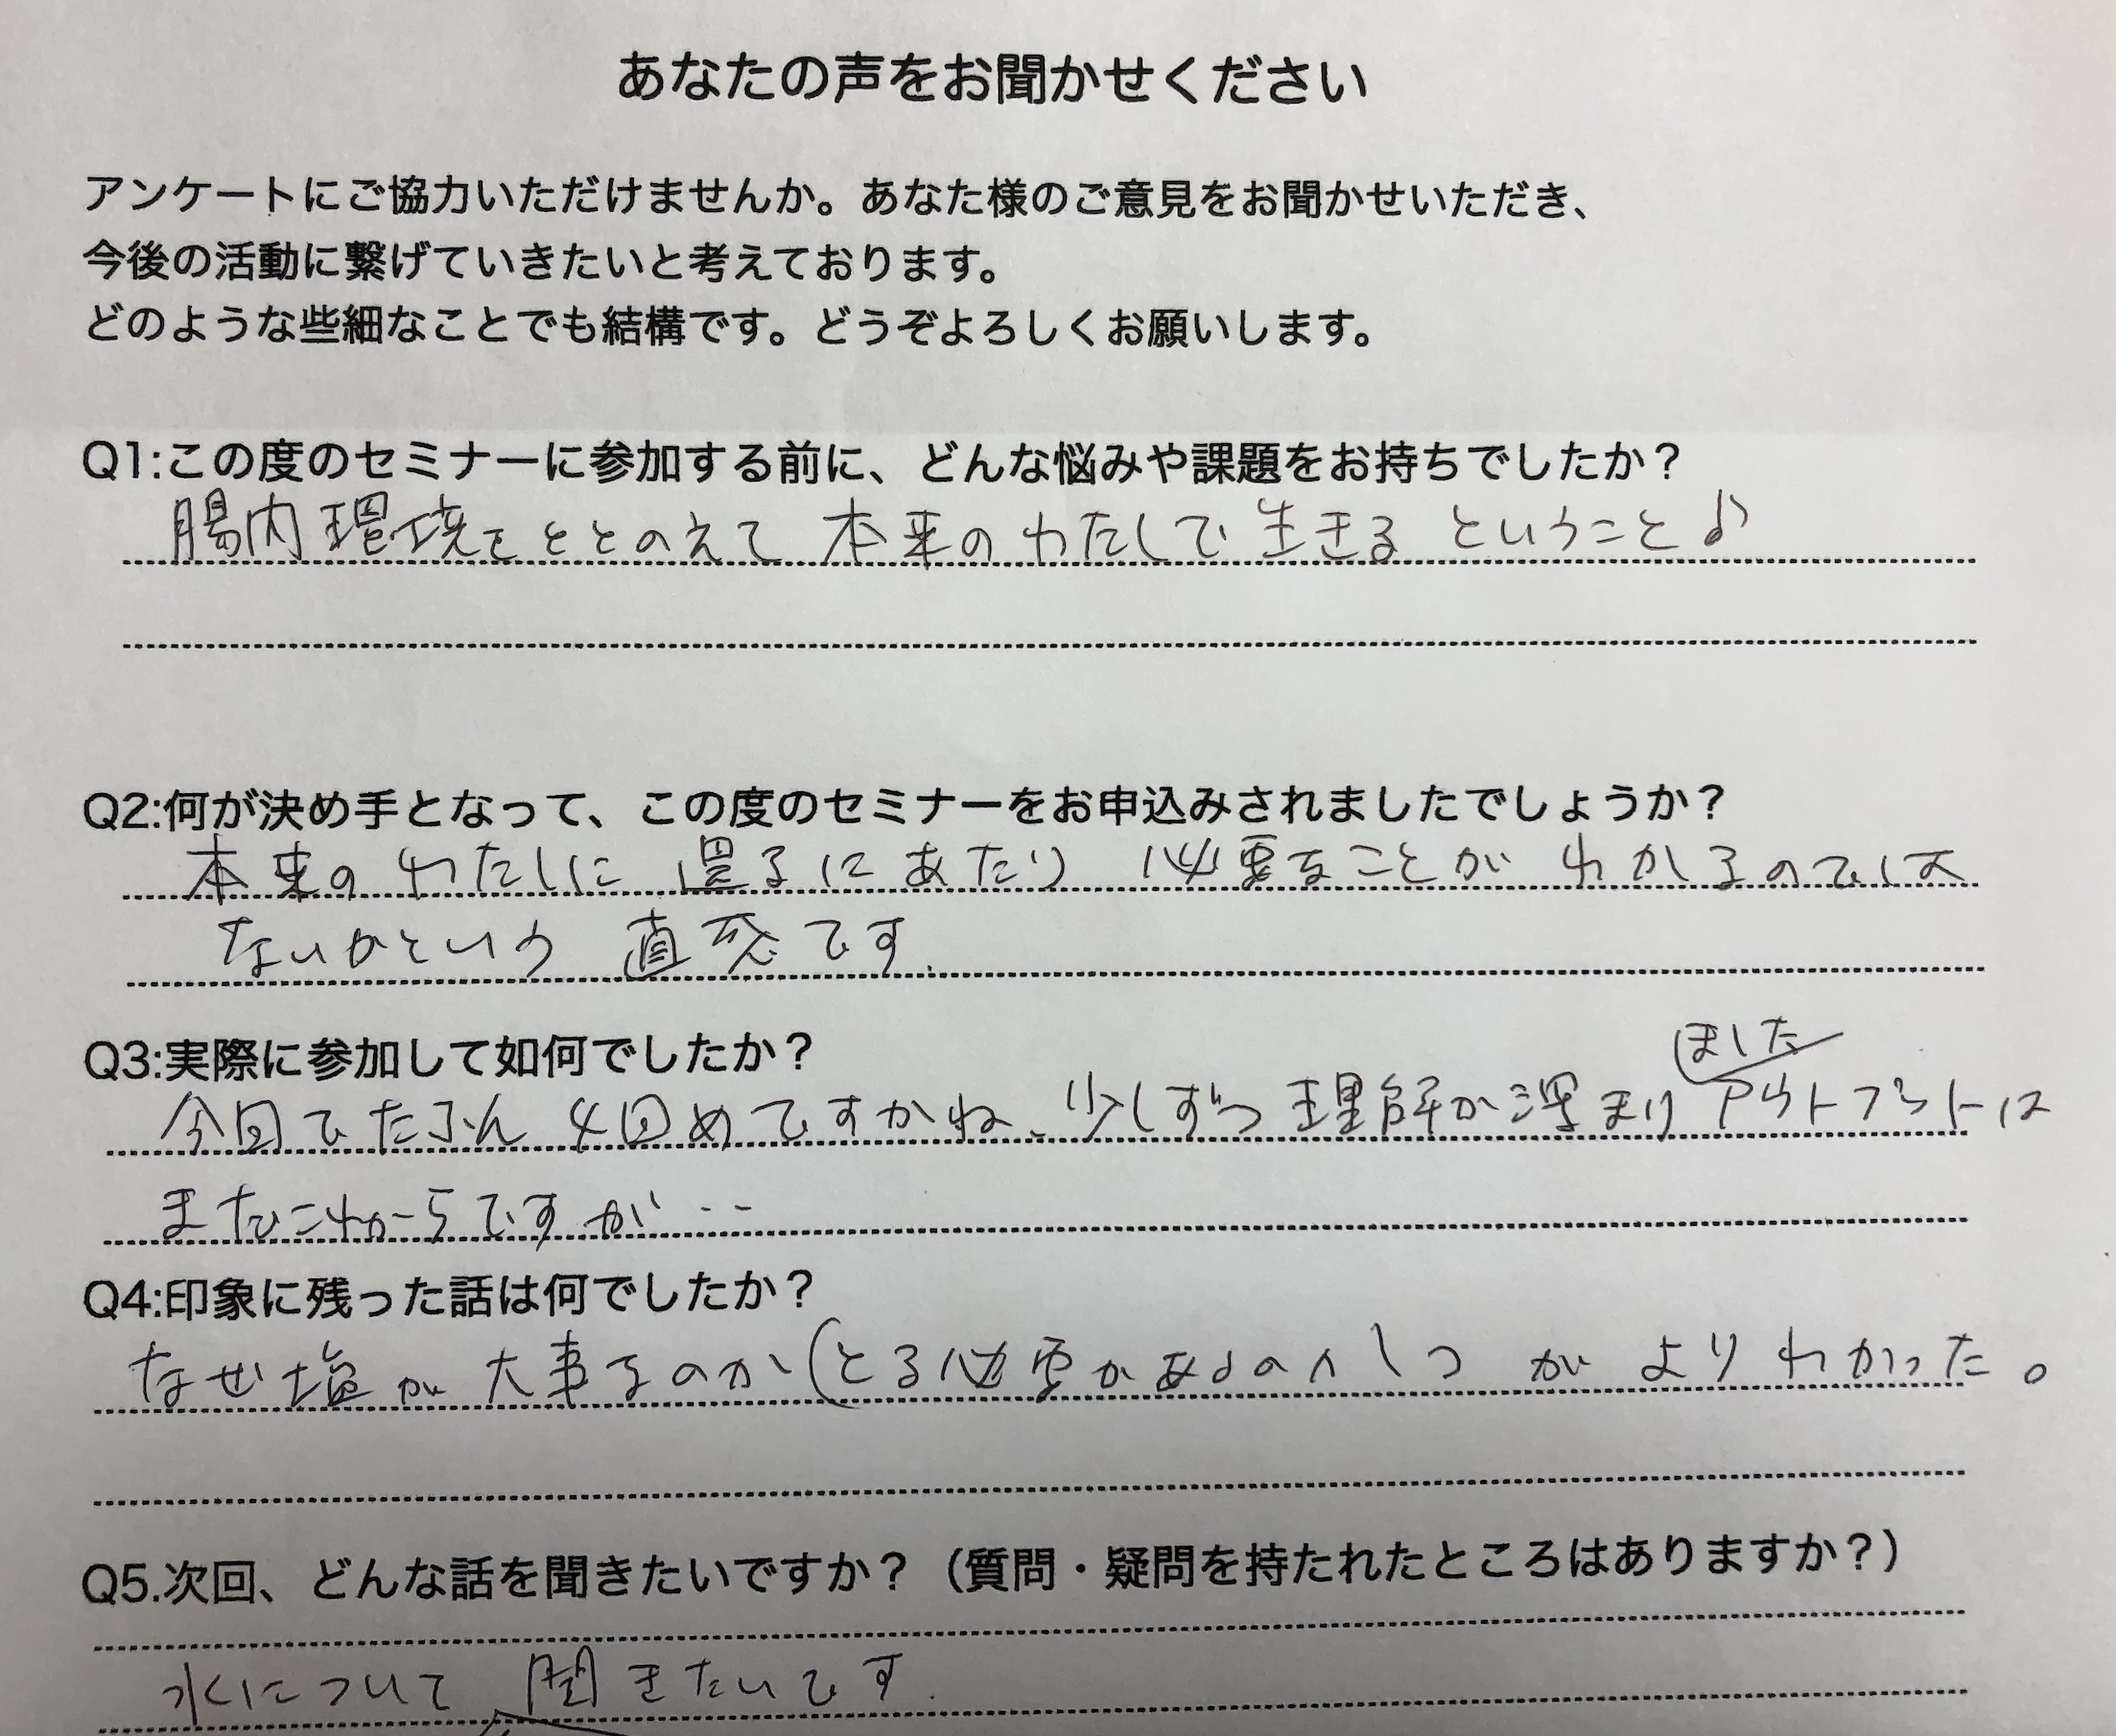 あなたの声をお聞かせください
アンケートにご協力いただけませんか。あなた様のご意見をお聞かせいただき、
今後の活動に繋げていきたいと考えております。
どのような些細なことでも結構です。どうぞよろしくお願いします。
Q1:この度のセミナーに参加する前に、どんな悩みや課題をお持ちでしたか？
腸内環境をととのえて 本来のわたしで生きる ということ♪
Q2:何が決め手となって、この度のセミナーをお申込みされましたでしょうか？
本来の わたしに 還るにあたり 必要なことが わかるのでは
ないかという 直感です.
Q3:実際に参加して如何でしたか？
ました
今回でたぶん 4回めですかね、少しずつ 理解が深まり アウトプットは
まだこれからですが‥
Q4:印象に残った話は何でしたか？
なぜ塩が 大事なのか(とる必要があるのか) が よりわかった。
Q5.次回、どんな話を聞きたいですか？（質問・疑問を持たれたところはありますか？）
水について 聞きたいです.